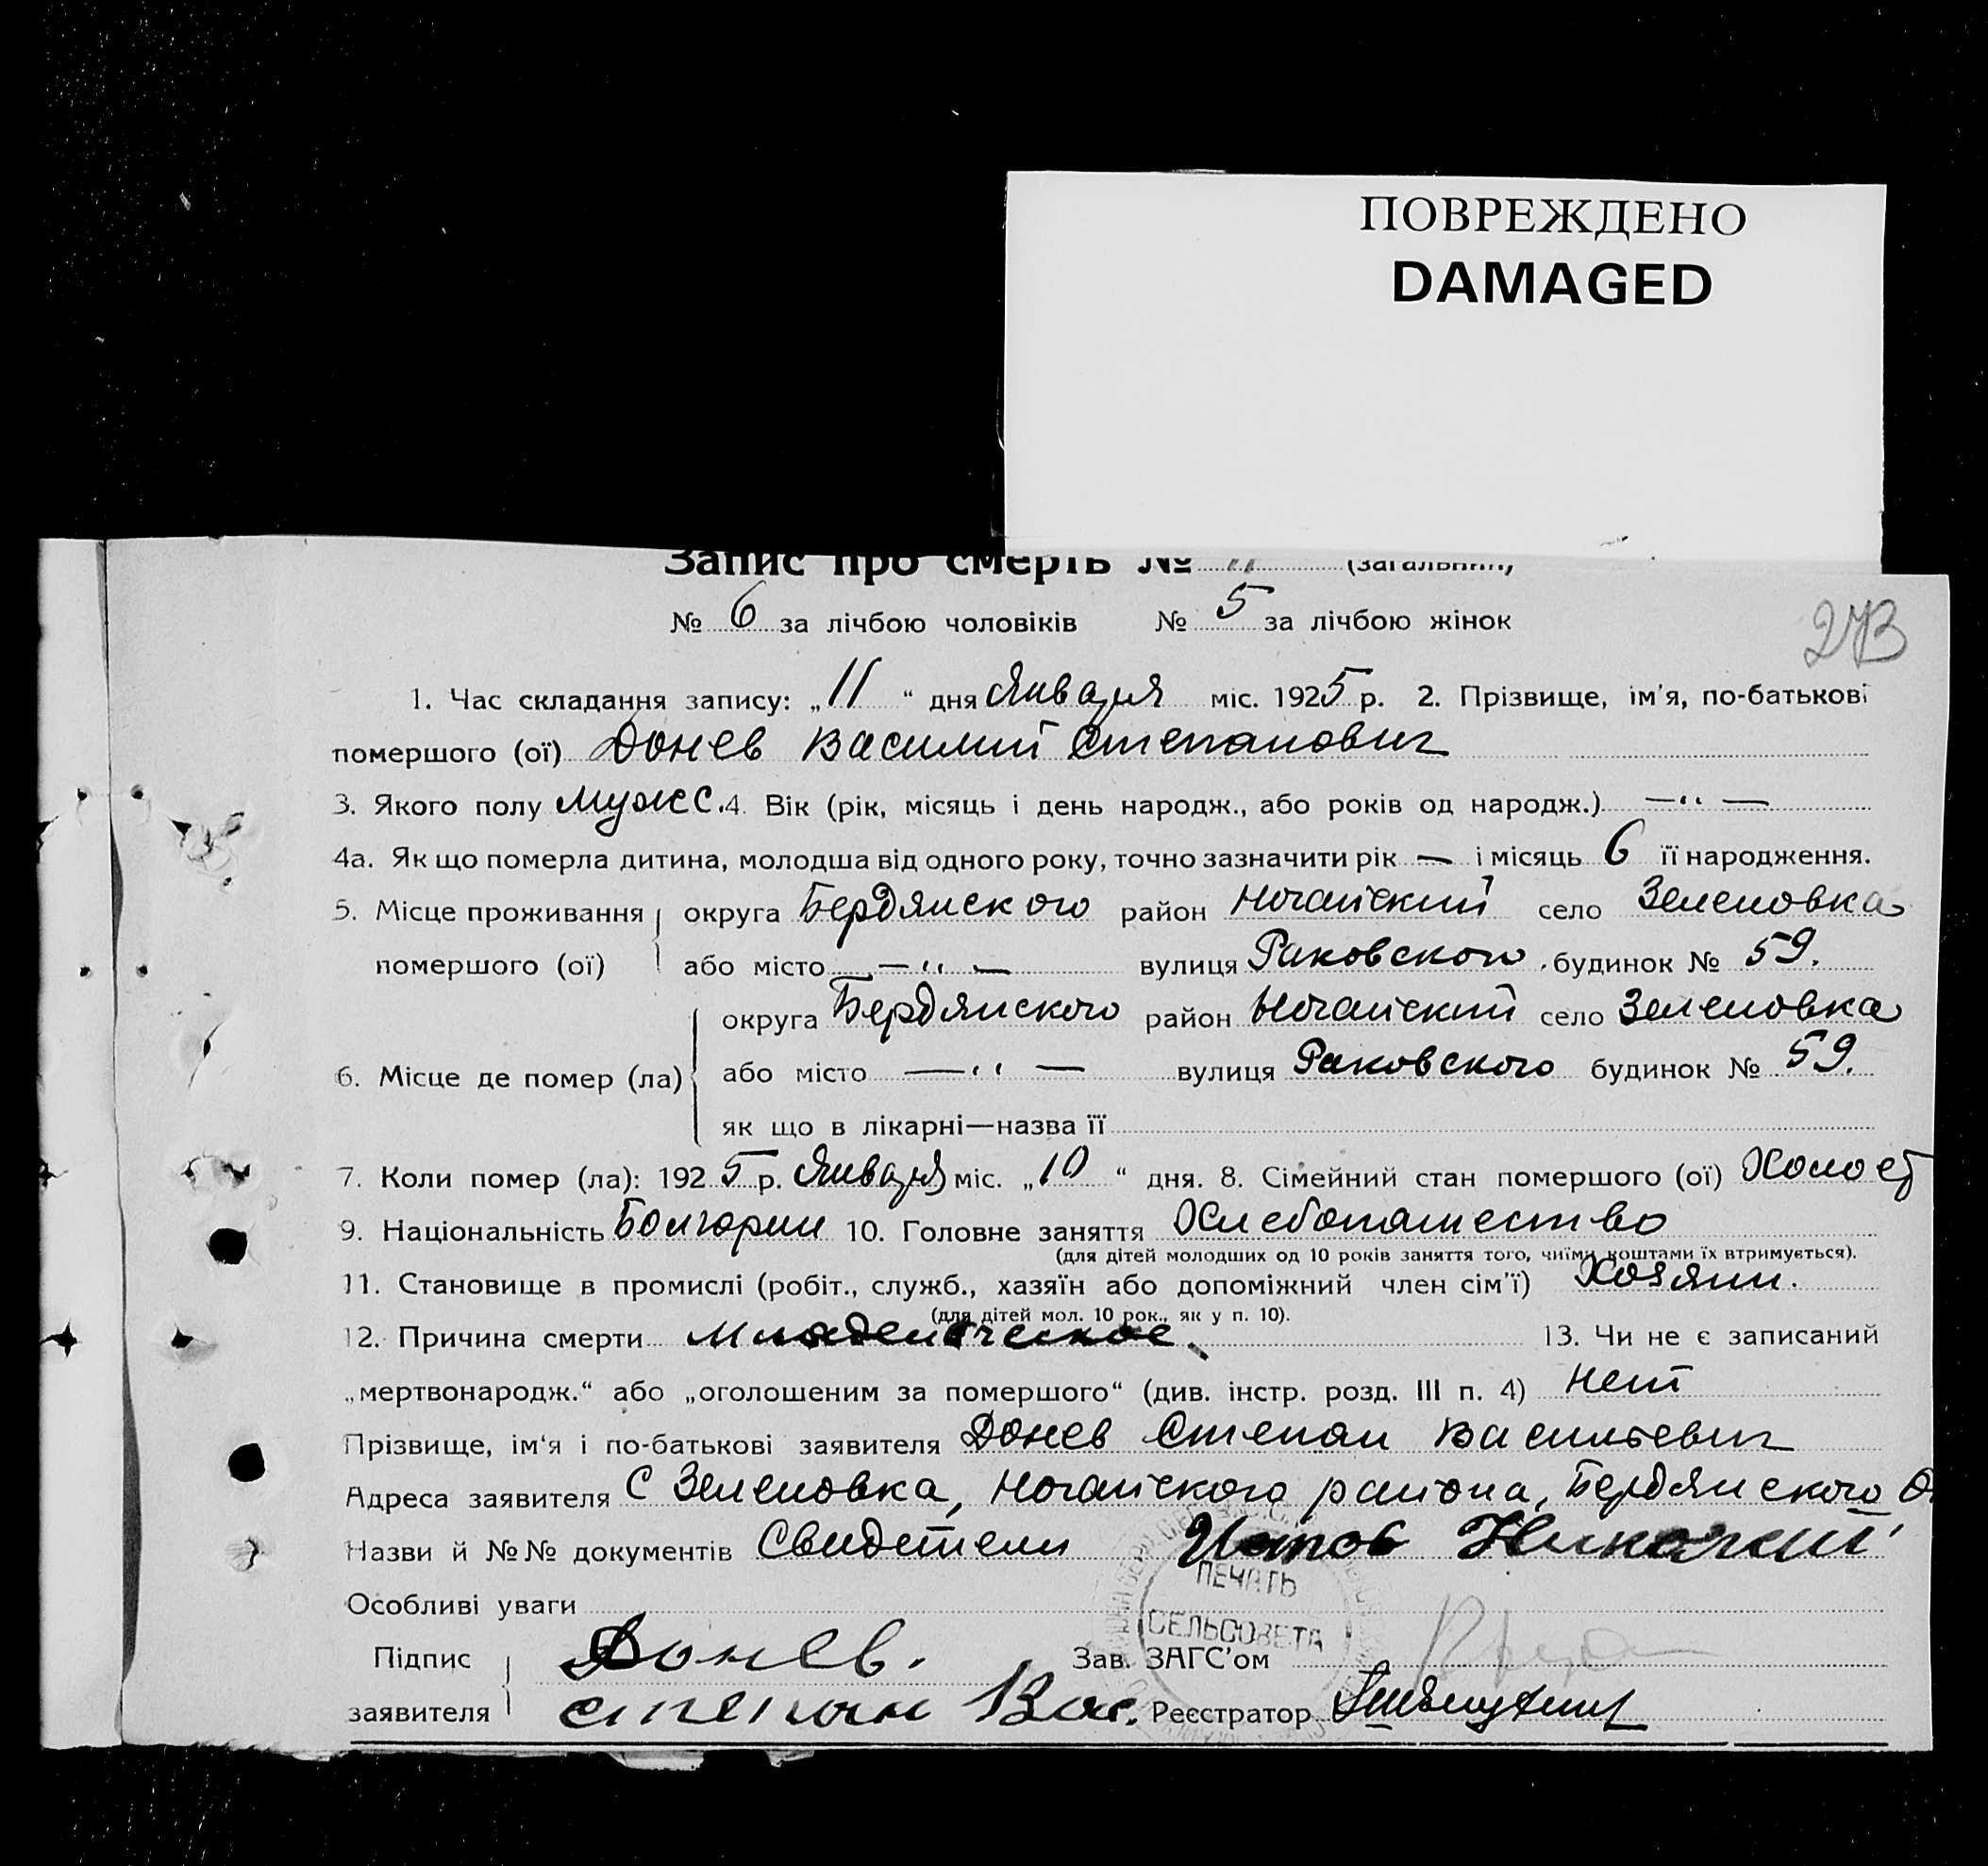 ПОВРЕЖДЕНО
DAMAGED
Запис про смерть № 11 (загальний)
№ 6 за лічбою чоловіків № 5 за лічбою жінок
273
1. Час складання запису: „11“ дня Января міс. 1925 р. 2. Прізвище, ім'я, по-батькові
помершого (ої) Донев Василий Степанович
3. Якого полу Мужс. 4. Вік (рік, місяць і день народж., або років од народж.) —"—
4а. Як що померла дитина, молодша від одного року, точно зазначити рік — і місяць 6 її народження.
5. Місце проживання округа Бердянского район Ногайский село Зеленовка
помершого (ої) або місто —"— вулиця Раковского. будинок № 59.
округа Бердянского район Ногайский село Зеленовка
6. Місце де помер (ла) або місто —"— вулиця Раковского будинок № 59.
як що в лікарні—назва її
7. Коли помер (ла): 1925 р. Января міс. „10“ дня. 8. Сімейний стан помершого (ої) Холост
9. Національність Болгарин 10. Головне заняття Хлебопашество
(для дітей молодших од 10 років заняття того, чиїми коштами їх втримується).
11. Становище в промислі (робіт., служб., хазяїн або допоміжний член сім'ї) Хозяин.
(для дітей мол. 10 рок., як у п. 10).
12. Причина смерти Младенческое. 13. Чи не є записаний
„мертвонародж.“ або „оголошеним за помершого“ (див. інстр. розд. III п. 4) нет
Прізвище, ім'я і по-батькові заявителя Донев Степан Васильевич
Адреса заявителя С Зеленовка, Ногайского района, Бердянского О
Назви й №№ документів Свидетели Николай
ПЕЧАТЬ
Особливі уваги
СЕЛЬСОВЕТА
Підпис Донев. Зав. ЗАГС'ом
заявителя Степан Вас. Реєстратор